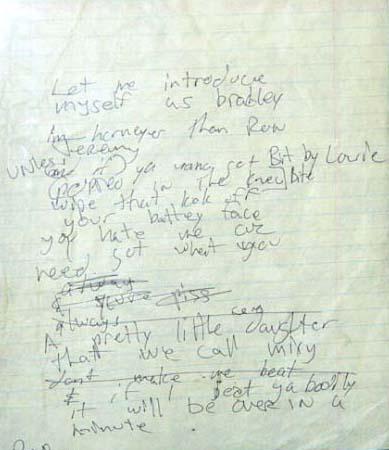 Let me introduce
myself as bradley
horneyer than Ron
Jeremy
Unless
ya wang get Bit by Lowrie
in the knee/bite
wipe that kok off
your battey face
you hate me cuz
need got what you
always
A pretty little daughter
that we call miky
dont make me beat
if I beat ya boolly
it will be over in a
minute.